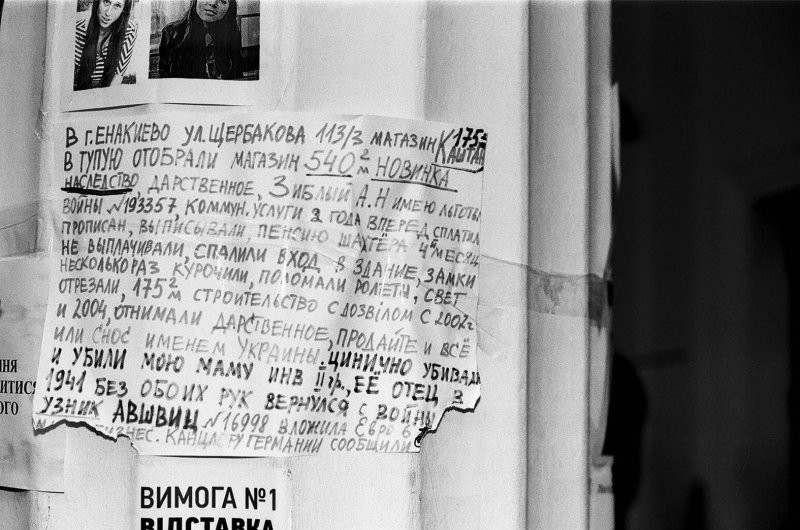 В г. ЕНАКИЕВО УЛ. ЩЕРБАКОВА 113/3 МАГАЗИН КАШТАН 175²
В ТУПУЮ ОТОБРАЛИ МАГАЗИН 540 м² НОВИНКА
НАСЛЕДСТВО, ДАРСТВЕННОЕ, ЗИБЛЫЙ А.Н ИМЕЮ ЛЬГОТЫ
ВОЙНЫ №193357, КОММУН. УСЛУГИ 2 ГОДА ВПЕРЕД СПЛАТИЛ
ПРОПИСАН, ВЫПИСЫВАЛИ, ПЕНСИЮ ШАХТЁРА 4 МЕСЯЦ
НЕ ВЫПЛАЧИВАЛИ, СПАЛИЛИ ВХОД В ЗДАНИЕ, ЗАМКИ
НЕСКОЛЬКО РАЗ КУРОЧИЛИ, ПОЛОМАЛИ РОЛЕТИ, СВЕТ
ОТРЕЗАЛИ, 175 м² СТРОИТЕЛЬСТВО С ДОЗВІЛОМ С 2002г
И 2004, ОТНИМАЛИ ДАРСТВЕННОЕ, ПРОДАЙТЕ И ВСЁ
ИЛИ СНОС ИМЕНЕМ УКРАИНЫ. ЦИНИЧНО УБИВАЛИ
И УБИЛИ МОЮ МАМУ ИНВ II гр., ЕЁ ОТЕЦ В
1941 БЕЗ ОБОИХ РУК ВЕРНУЛСЯ С ВОЙНЫ
УЗНИК АВШВИЦ №16998 ВЛОЖИЛА ЕВРО В
БИЗНЕС. КАНЦЛЕРУ ГЕРМАНИИ СООБЩИЛИ
НЯ
ИТИСЯ
ОГО
ВИМОГА №1
ВІДСТАВКА